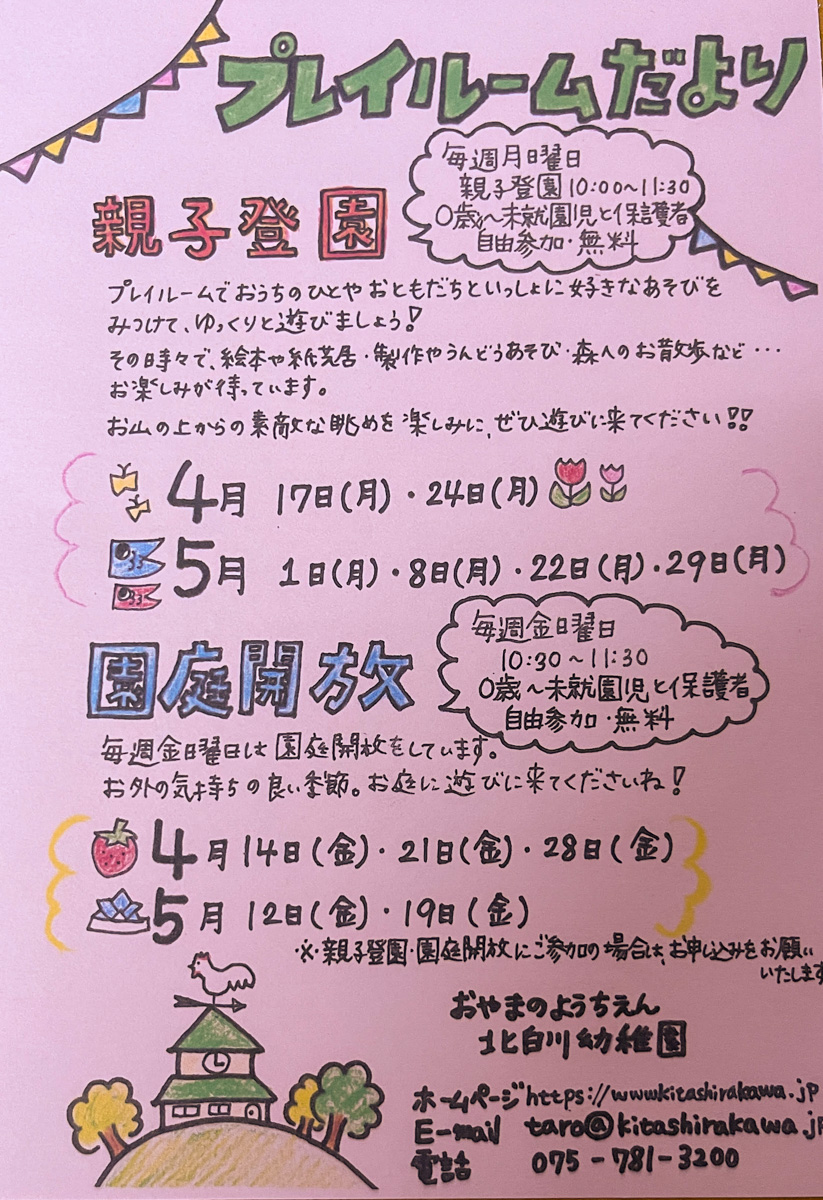 プレイルームだより
毎週月曜日
親子登園 10:00〜11:30
0歳〜未就園児と保護者
自由参加・無料
親子登園
プレイルームでおうちのひとや おともだちといっしょに好きなあそびを
みつけて、ゆっくりと遊びましょう!
その時々で、絵本や紙芝居・製作やうんどうあそび・森へのお散歩など・・・
お楽しみが待っています。
お山の上からの素敵な眺めを楽しみに、ぜひ遊びに来てください!!
4月 17日(月)・24日(月)
5月 1日(月)・8日(月)・22日(月)・29日(月)
毎週金曜日
10:30〜11:30
0歳〜未就園児と保護者
自由参加・無料
園庭開放
毎週金曜日は園庭開放をしています。
お外の気持ちの良い季節。お庭に遊びに来てくださいね!
4月14日(金)・21日(金)・28日(金)
5月 12日(金)・19日(金)
※親子登園・園庭開放にご参加の場合は、お申し込みをお願い
いたします
おやまのようちえん
北白川幼稚園
ホームページhttps://wwwkitashirakawa.jp
E-mail taro@kitashirakawa.jp
電話 075-781-3200